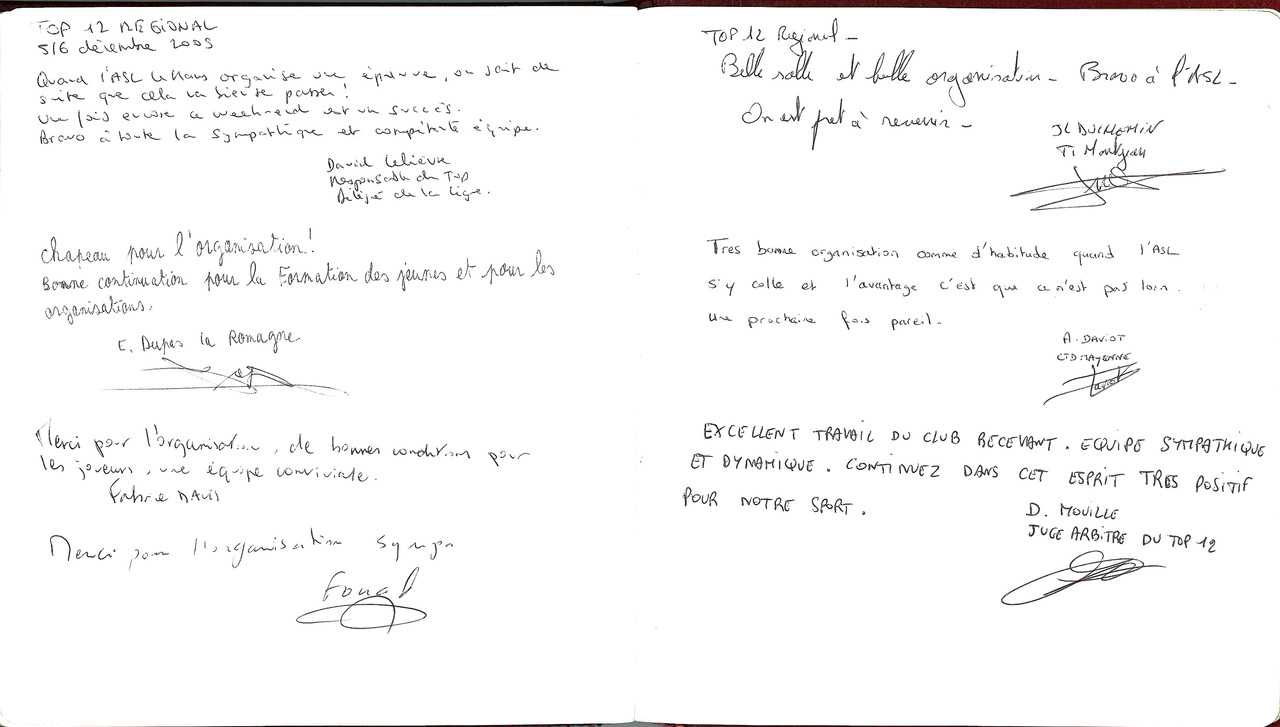 TOP 12 REGIONAL
5/6 décembre 2009
Quand l'ASL Le Mans organise une épreuve, on sait de
suite que cela va bien se passer!
une fois encore ce week-end est un succès.
Bravo à toute la sympathique et compétente équipe.
David Lelièvre
Responsable du TOP
Délégué de la ligue.
chapeau pour l'organisation!
Bonne continuation pour la Formation des jeunes et pour les
organisations.
E. Dupas la Romagne
Merci pour l'organisation, de bonnes conditions pour
les joueurs, une équipe conviviale.
DAVID
Merci pour l'organisation sympa
TOP 12 Régional -
Belle salle et belle organisation - Bravo à l'ASL -
On est prêt à revenir -
JL DUCHEMIN
Tres bonne organisation comme d'habitude quand l'ASL
s'y colle et l'avantage c'est que ce n'est pas loin.
une prochaine fois pareil.
A. DAVIOT
CD MAYENNE
Daviot
EXCELLENT TRAVAIL DU CLUB RECEVANT. EQUIPE SYMPATHIQUE
ET DYNAMIQUE. CONTINUEZ DANS CET ESPRIT TRES POSITIF
POUR NOTRE SPORT.
D. MOUILLE
JUGE ARBITRE DU TOP 12